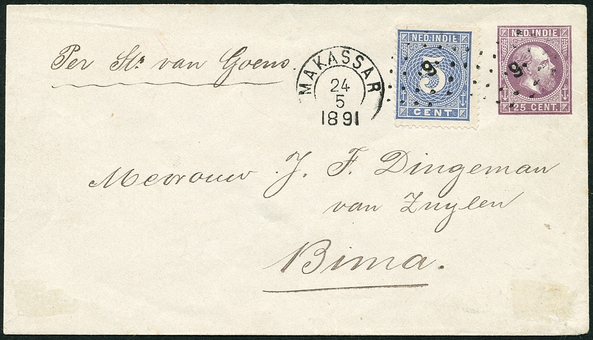 Per St. van Goens.
MAKASSAR
24
5
1891
NED. INDIE
5
CENT
NED. INDIE
25 CENT.
9
9
Mevrouw J. F. Dingeman
van Zuylen
Bima.